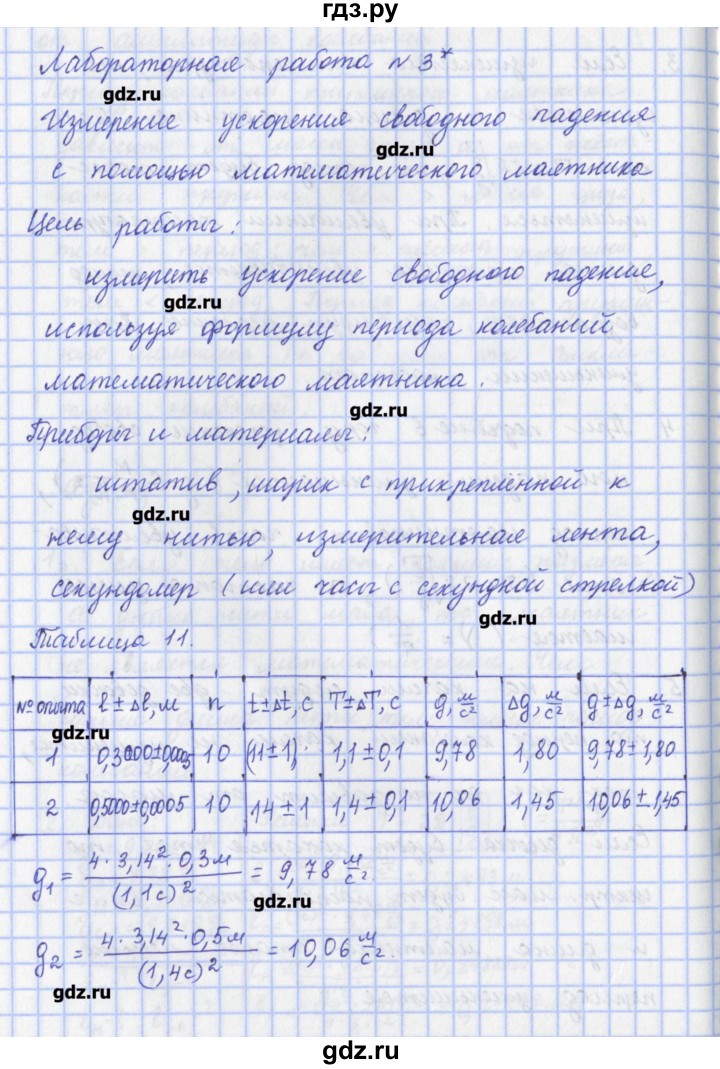 гдз.ру
Лабораторная работа №3*
gdz.ru
Измерение ускорения свободного падения
gdz.ru
с помощью математического маятника
Цель работы:
измерить ускорение свободного падение,
gdz.ru
используя формулу периода колебаний
математического маятника.
gdz.ru
Приборы и материалы:
штатив, шарик с прикреплённой к
gdz.ru
нему нитью, измерительная лента,
секундомер (или часы с секундной стрелкой)
gdz.ru
Таблица 11.
№ опыта l±Δl, м n t±Δt, с T±ΔT, с g, м/с² Δg, м/с² g±Δg, м/с²
gdz.ru
1 0,3000±0,0005 10 (11±1), 1,1±0,1 9,78 1,80 9,78±1,80
2 0,5000±0,0005 10 14±1 1,4±0,1 10,06 1,45 10,06±1,45
g₁ = 4·3,14²·0,3м / (1,1с)² = 9,78 м/с²
gdz.ru
g₂ = 4·3,14²·0,5м / (1,4с)² = 10,06 м/с².
gdz.ru
gdz.ru